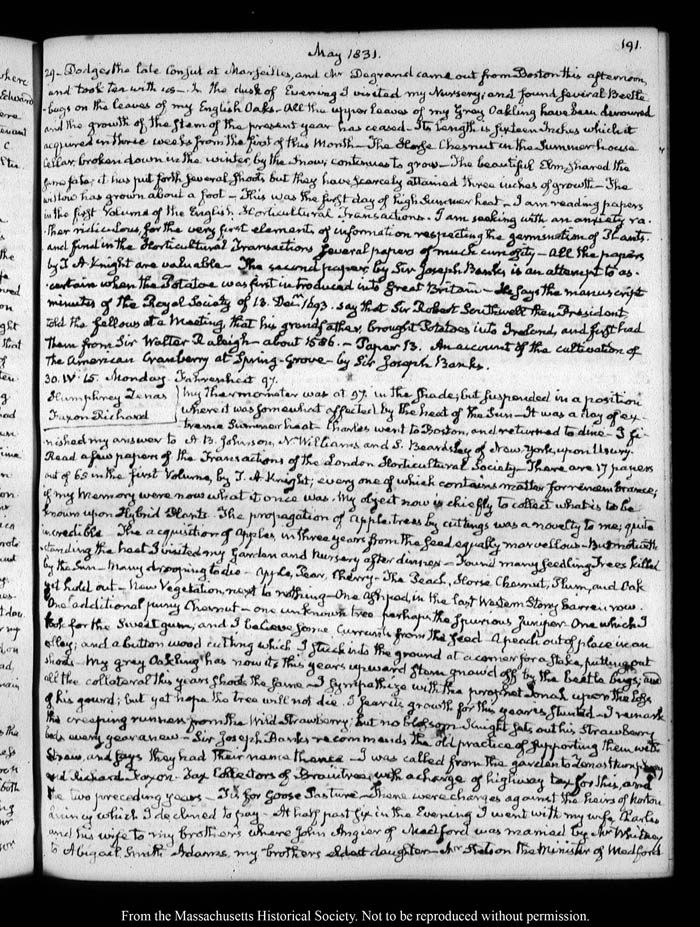 191.
May 1831.
29 - Dodge, the late Consul at Marseilles, and Mr Degrand came out from Boston this afternoon,
and took tea with us - In the dusk of Evening I visited my Nursery; and found several Beetle
-bugs on the leaves of my English Oaks - All the upper leaves of my Grey Oakling have been devoured
and the growth of the stem of the present year has ceased - Its length is sixteen Inches which it
acquired in three weeks from the first of this Month - The Horse Chesnut in the Summer house
Cellar, broken down in the winter by the snow, continues to grow - The beautiful Elm shared the
same fate; it has put forth several shoots but they have scarcely attained three inches of growth - The
has grown about a foot - This was the first day of high Summer heat - I am reading papers
in the first Volume of the English Horticultural Transactions. I am seeking with an anxiety ra-
ther ridiculous, for the very first elements of information respecting the germination of Plants.
and find in the Horticultural Transactions several papers of much curiosity - All the papers
by T. A. Knight are valuable - The second paper by Sir Joseph Banks is an attempt to as-
certain when the Potatoe was first introduced into Great Britain - He says the manuscript
minutes of the Royal Society of 13. Decr 1693. say that Sir Robert Southwell then President,
told the fellows at a Meeting, that his grandfather, brought Potatoes into Ireland, and first had
them from Sir Walter Raleigh - about 1586. - Paper 13. An account of the cultivation of
the American Cranberry at Spring-Grove - by Sir Joseph Banks.
30. IV. 15. Monday. Fahrenheit 97.
Humphrey Lenas
Faxon Richard
My thermometer was at 97. in the shade; but suspended in a position
where it was somewhat affected by the heat of the Sun - It was a day of ex-
treme Summer heat - Charles went to Boston, and returned to dine - I fi-
nished my answer to A. B. Johnson, N. Williams and S. Beardsley of New York, upon Usury.
Read a few papers of the Transactions of the London Horticultural Society - There are 17 papers
out of 65 in the first Volume, by T. A. Knight; every one of which contains matter for remembrance;
if my Memory were now what it once was. My object now is chiefly to collect what is to be
known upon Hybrid Plants. The propagation of Apple-trees by cuttings was a novelty to me; quite
incredible - The acquisition of Apples in three years from the seed equally marvellous - But notwith
standing the heat I visited my Garden and Nursery after dinner - Found many seedling Trees killed
by the Sun - Many drooping to die - Apple, Pear, Cherry - The Peach, Horse Chesnut, Plum, and Oak
yet hold out - New Vegetation, next to nothing - One in the last Western Stony Barren row.
One additional puny Chesnut - one unknown tree perhaps the spurious Juniper - One which I
took for the Sweet gum, and I believe some Currants from the Seed - A peach out of place in an
alley; and a button wood cutting which I stuck into the ground at a corner for a stake, putting out
shoots - My grey Oakling has now its this years upward stem gnaw'd off by the beetle bugs; and
all the collateral this years shoots the same - I sympathize with the prophet Jonah upon the loss
of his gourd; but yet hope the tree will not die. I fear its growth for this year is stunted - I remark
the creeping runners from the Wild Strawberry; but no blossom - Knight sets out his Strawberry
beds every year anew - Sir Joseph Banks recommends the old practice of supporting them with
Straw, and says they had their name thence - I was called from the garden to Lenas Humphrey
and Richard Faxon. Tax Collectors of Braintree, with a charge of highway tax for this, and
the two preceding years - It is for Goose Pasture - There were charges against the heirs of Norton
Quincy which I declined to pay - At half past six in the Evening I went with my wife, Charles
and his wife to my brothers where John Angier of Medford was married by Mr Whitney
to Abigail Smith Adams, my brothers eldest daughter - Mr Stetson the Minister of Medford
From the Massachusetts Historical Society. Not to be reproduced without permission.